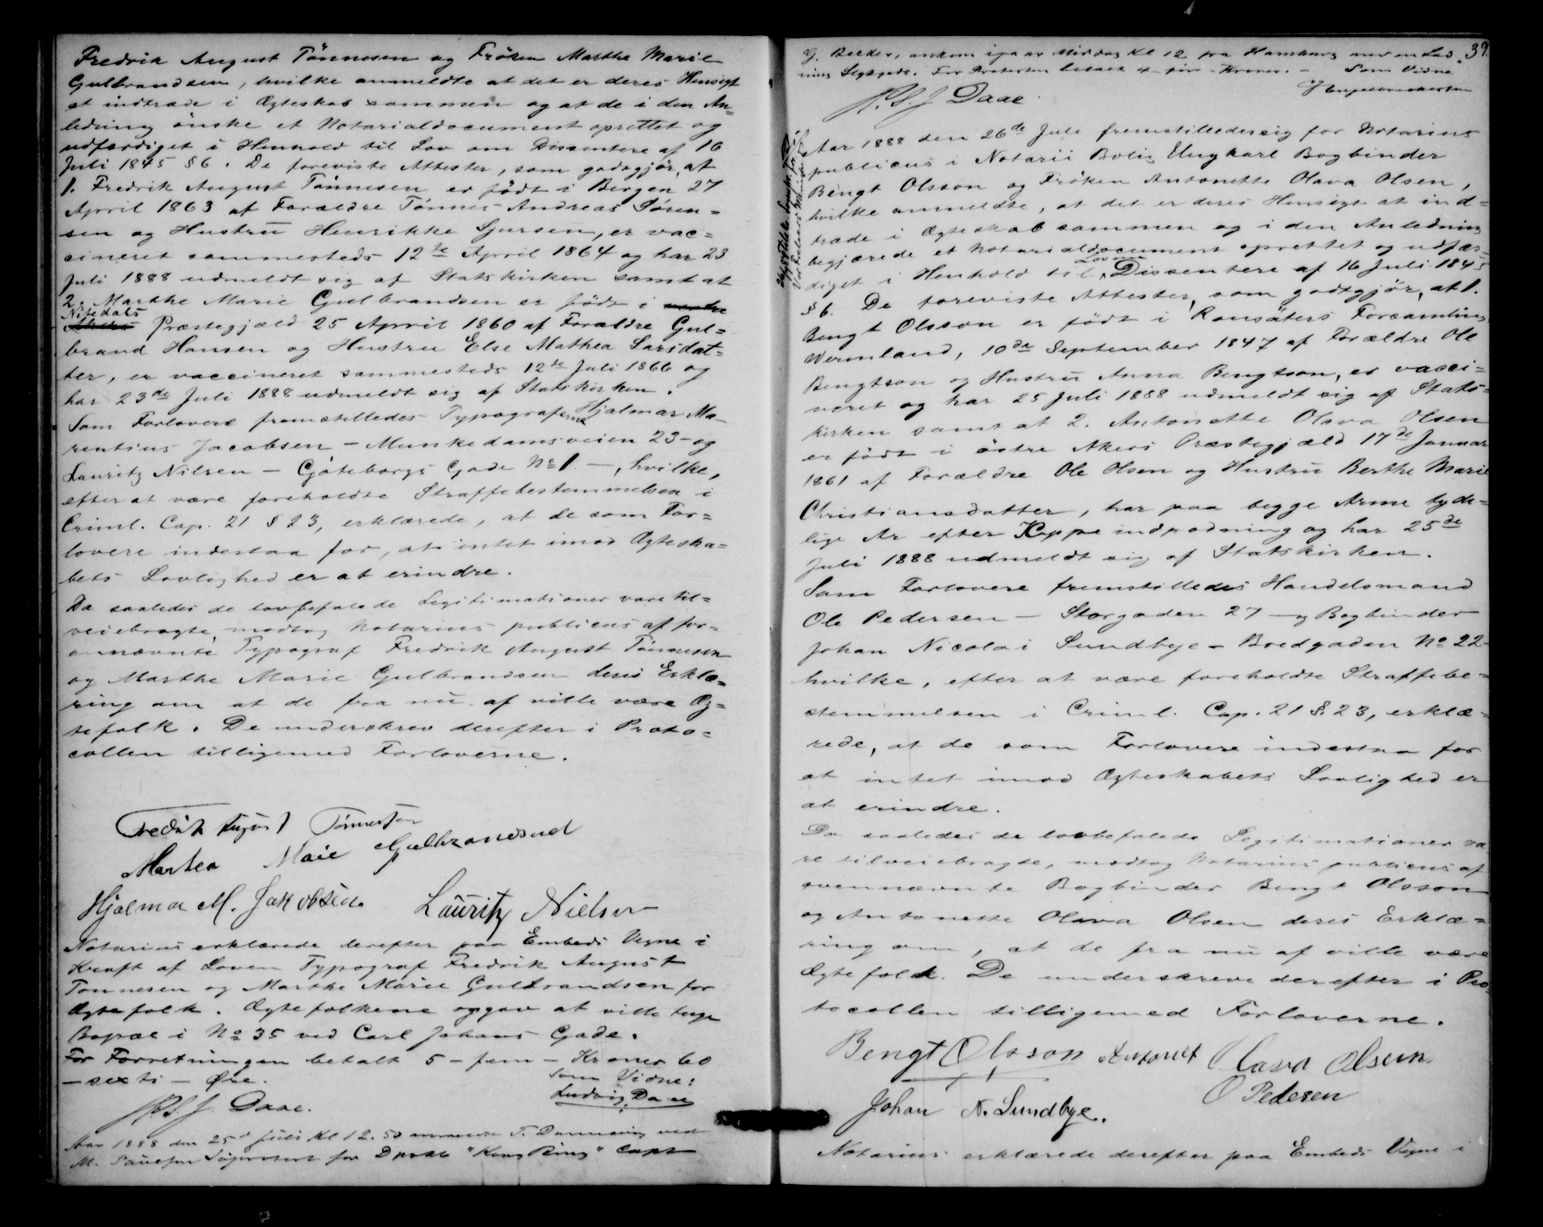 Fredrik August Tönnesen og Fröken Marthe Marie
Gulbrandsen, hvilke anmeldte at det er deres Hensigt
at indtræde i Ægteskab sammen og at de i den An=
ledning önske et Notarialdocument oprettet og
udfærdiget i Henhold til Lov om Dissentere af 16
Juli 1845 § 6. De foreviste Attester, som godtgjør, at
1. Fredrik August Tönnesen er født i Bergen 27
April 1863 af Forældre Tønnes Andreas Søren=
sen og Hustru Henrikke Sjursen, er vac=
cineret sammesteds 12te April 1864 og har 23
Juli 1888 udmeldt sig af Statskirken samt at
2. Marthe Marie Gulbrandsen er født i
Nitedals Præstegjæld 25 April 1860 af Forældre Gul=
brand Hansen og Hustru Else Mathea Larsdat=
ter, er vaccineret sammesteds 12te Juli 1866 og
har 23de Juli 1888 udmeldt sig af Statskirken.
Som Forlovere fremstilledes Typograferne Hjalmar Ma-
rentius Jacobsen – Munkedamsveien 23 – og
Lauritz Nilsen – Göteborgs Gade No 1 –, hvilke,
efter at være foreholdte Straffebestemmelsen i
Criml. Cap. 21 § 23, erklærede, at de som For=
lovere indestaa for, at intet imod Ægteska=
bets Lovlighed er at erindre.
Da saaledes de lovbefalede Legitimationer vare til=
veiebragte, modtog Notarius publicus af for=
annævnte Typograf Fredrik August Tönnesen
og Marthe Marie Gulbrandsen deres Erklæ=
ring om at de fra nu af ville være Æg=
tefolk. De underskrev derefter i Proto=
collen tilligemed Forloverne.
Fredrik August Tönnesen
Marthea Marie Gulbrandsend
Hjalmar M. Jakobsen. Lauritz Nielsen
Notarius erklærede derefter paa Embeds Vegne i
Kraft af Loven Typograf Fredrik August
Tönnesen og Marthe Marie Gulbrandsen for
Ægtefolk. Ægtefolkene opgav at ville tage
Bopæl i No 35 ved Carl Johans Gade.
For Forretningen betalt 5 – fem – Kroner 60
– sexti – Øre.
Som Vidne:
Ludvig Daae
P.S.J. Daae.
Aar 1888 den 25de Juli Kl 12.50 T. ved
M. Søprotest for "Kong Ring" Capt
39
G. Becker, ankom igaar Middag Kl 12 fra Hamburg med en Lad=
ning Stykgods. For Protesten betalt 4 – fire – Kroner. – Som Vidne
P.S.J Daae
Aar 1888 den 26de Juli fremstilledes sig for Notarius
publicus i Notarii Bolig Ungkarl Bogbinder
Bengt Olsson og Fröken Antonette Olava Olsen,
hvilke anmeldte, at det er deres Hensigt at ind=
træde i Ægteskab sammen og i den Anledning
begjærede et Notarialdocument oprettet og udfær=
diget i Henhold til Loven Dissentere af 16 Juli 1845
§ 6. De foreviste Attester, som godtgjør, at 1.
Bengt Olsson er født i Ransäters Forsamling
Wermland, 10de September 1847 af Forældre Ole
Bengtson og Hustru Anna Bengtson, er vacci=
neret og har 25 Juli 1888 udmeldt sig af Stats=
kirken samt at 2. Antonette Olava Olsen
er født i östre Akers Præstegjæld 17de Januar
1861 af Forældre Ole Olsen og Hustru Berthe Marie
Christiansdatter, har paa begge Arme tyde=
lige Ar efter Koppeindpodning og har 25de
Juli 1888 udmeldt sig af Statskirken.
Som Forlovere fremstilledes Handelsmand
Ole Pedersen – Storgaden 27 – og Bogbinder
Johan Nicolai Sundbye – Bredgaden No 22
hvilke, efter at være foreholdte Straffebe=
stemmelsen i Criml. Cap. 21 §. 23, erklæ=
rede, at de som Forlovere indestaa for
at intet imod Ægteskabets Lovlighed er
at erindre.
Da saaledes de lovbefalede Legitimationer va
re tilveiebragte, modtog Notarius publicus af
ovennævnte Bogbinder Bengt Olsson
og Antonette Olava Olsen deres Erklæ=
ring om, at de fra nu af ville være
Ægtefolk. De underskreve derefter i Pro=
tocollen tilligemed Forloverne.
Bengt Olsson Antonet Olava Olsen
O Pedersen
Johan N. Sundbye.
Notarius erklærede derefter paa Embeds Vegne i